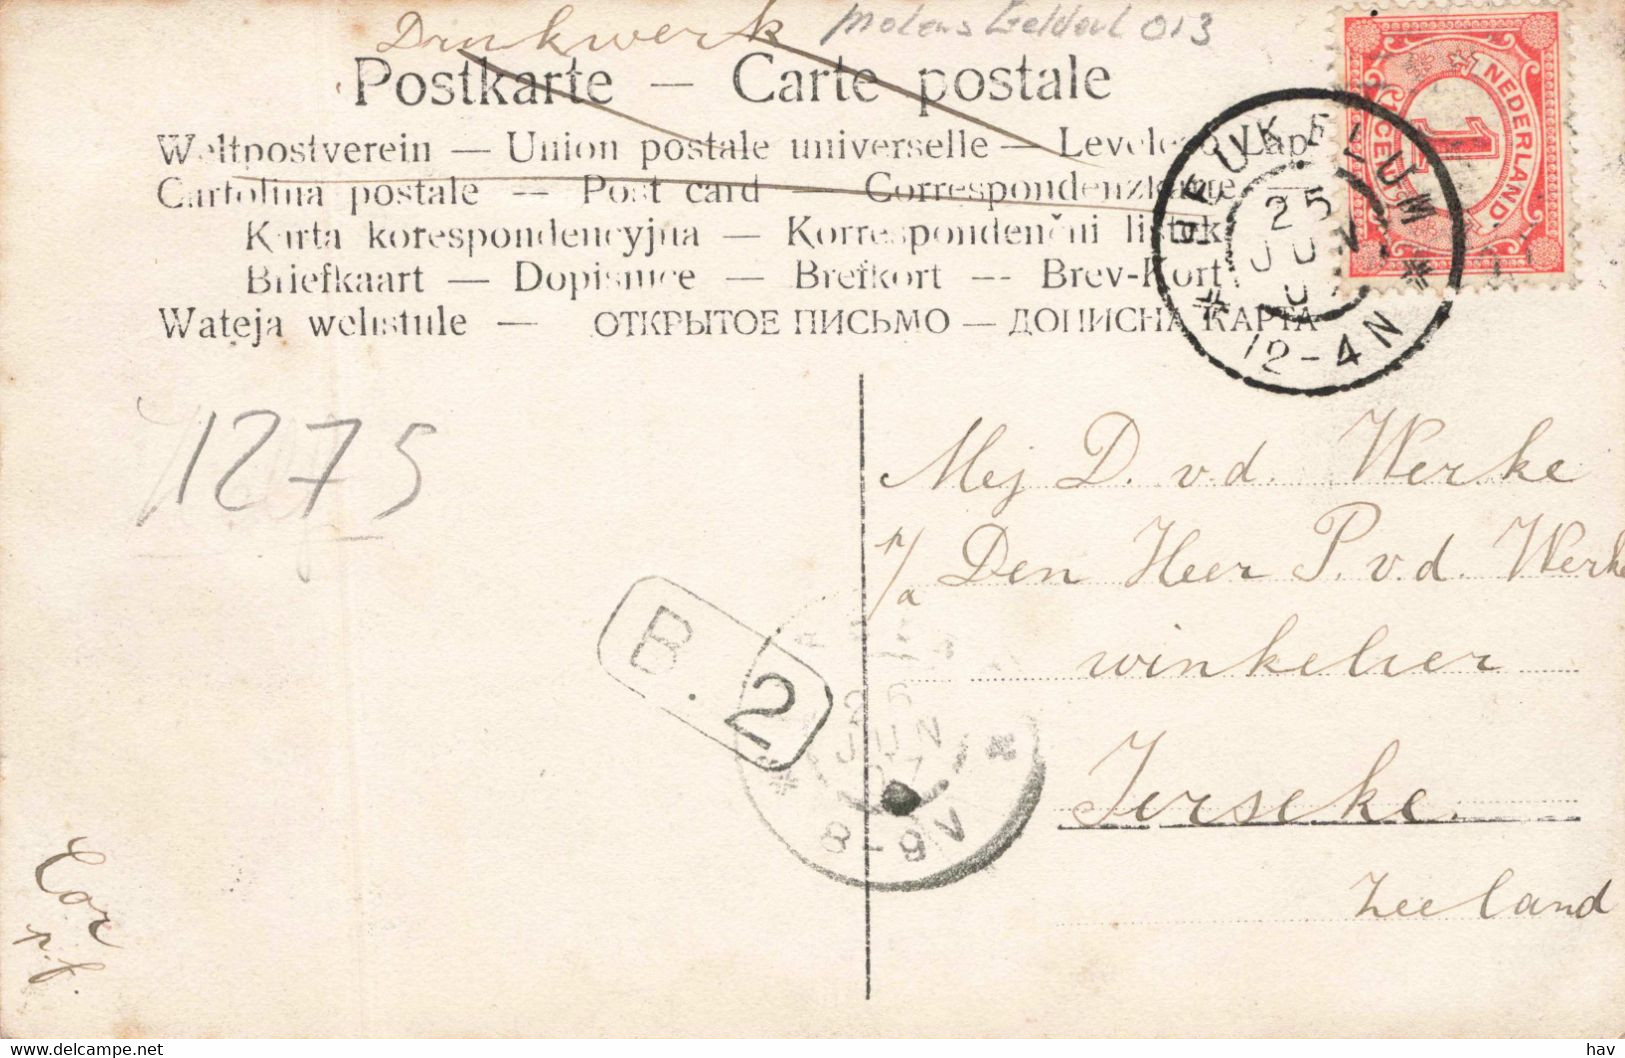 Drukwerk
Molens Gelderl 013
Postkarte — Carte postale
Weltpostverein — Union postale universelle — Levelező Lap
Cartolina postale — Post card — Correspondenzkarte —
Karta korespondencyjna — Korrespondenčni listek
Briefkaart — Dopisnice — Brefkort — Brev-Kort
Wateja welistule — ОТКРЫТОЕ ПИСЬМО — ДОПИСНА КАРТА
NEDERLAND
1
CENT
BEUKELUM
25
JUN
07
12-4N
1275
Mej D. v.d. Werke
p/a Den Heer P. v.d. Werke
winkelier
Ierseke.
Zeeland
B. 2
25
JUN
07
8-9V
Cor
p.f.
hav